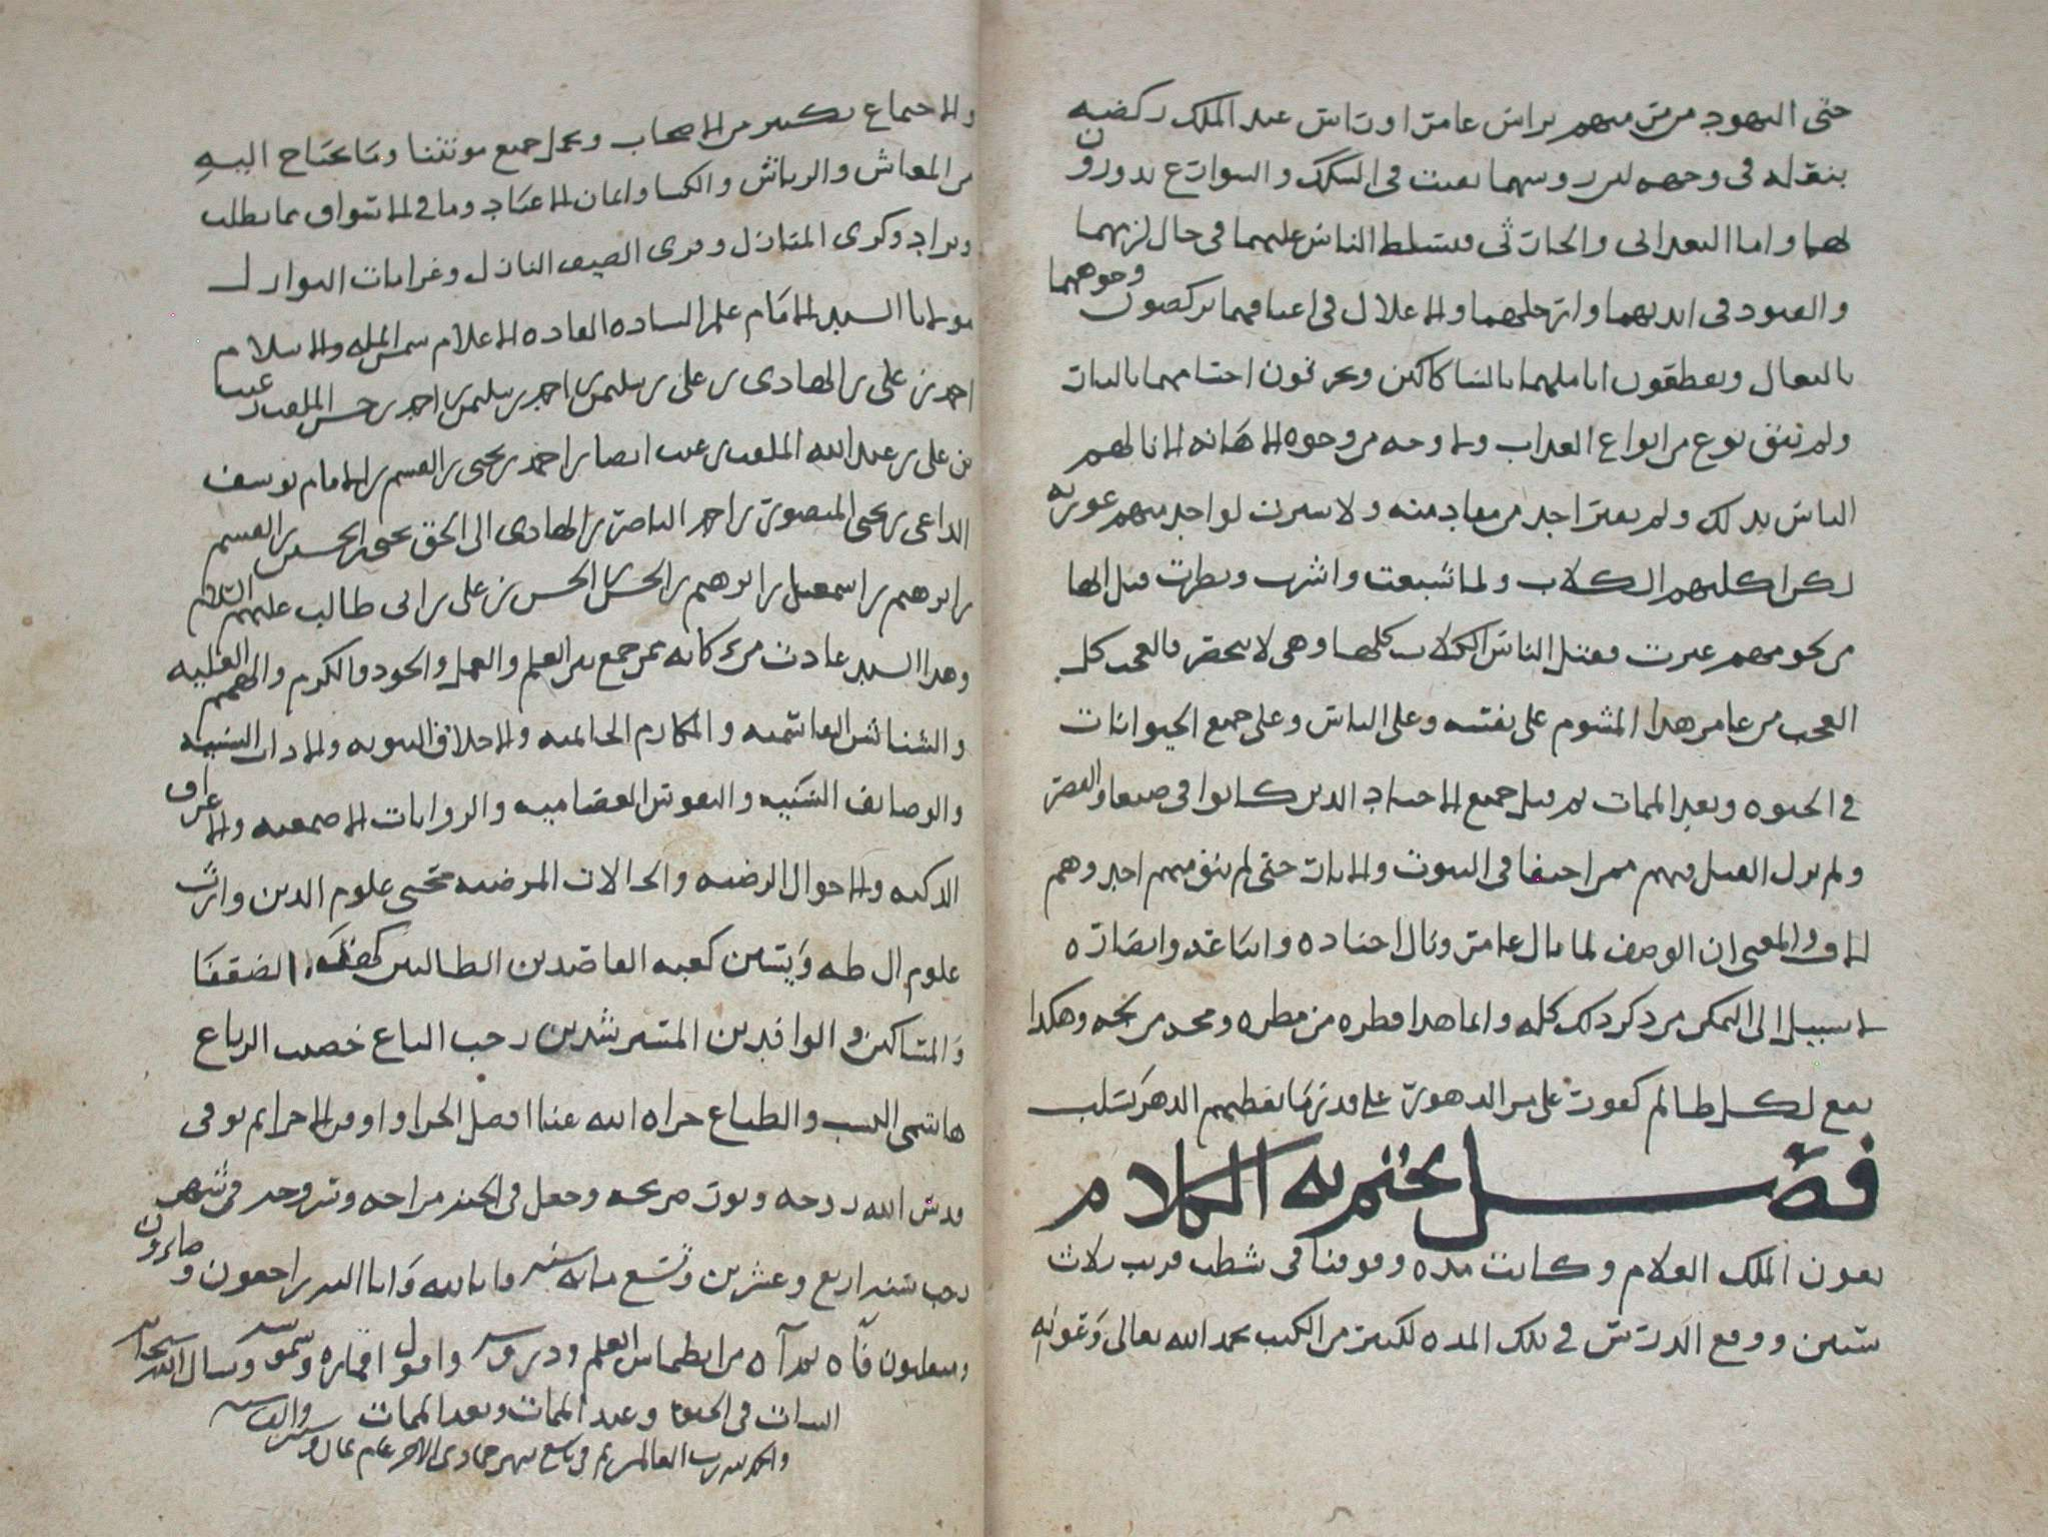 حتى اليهود من مر منهم براس عامر او راس عبد الملك ركضه
بنعله في وجهه ليس روسهما بقيت في السكك والشوارع يدورون
بهما واما البعداني والحارثي فتسلط الناس عليهما في حال لزمهما
والقيود في ايديهما وارجلهما والاغلال في اعناقهما يركضون وجوههما
بالنعال ويقطعون اناملهما بالسكاكين ويحرقون اجسامهما بالنار
ولم تبق نوع من انواع العذاب ولا وجه من وجوه الاهانه الا نالهم
الناس بذلك ولم يقبر احد من معاد منه ولا سترت لواحد منهم عورته
لكن اكلتهم الكلاب ولما شبعت واشرت وبطرت قيل انها
من لحومهم عبرت فقتل الناس الكلاب كلها وهي لا تنحصر فالعجب كل
العجب من عامر هذا المشوم على نفسه وعلى الناس وعلى جميع الحيوانات
في الحيوه وبعد الممات ثم قتل جميع الاجناد الذين كانوا في صنعا والقصر
ولم يزل القتل فيهم ممن اختفا في البيوت والابار حتى لم يبق منهم احد وهم
الاف والمعنى ان الوصف لما نال عامر ونال اجناده واتباعه وانصاره
لا سبيل الى التمكن من ذكر ذلك كله وانما هذا قطره من مطره ومجه من لجه وهكذا
يقع لكل ظالم كفور على مر الدهور على قدر ما يعطيهم الدهر يسلب
فصل يختم به الكلام
بعون الملك العلام وكانت مده وقوفنا في شطب قريب ثلاث
سنين ووقع الدرس في تلك المده لكثير من الكتب بحمد الله تعالى وعونه
والاجتماع بكثير من الاصحاب وتحمل جميع موننا وما يحتاج اليه
من المعاش والرياش والكسا واعان الاعياد وما في الاسواق مما يطلب
ويراد وكرى المنازل وقرى الضيف النازل وغرامات النوازل
مولانا السيد الامام علم الساده القاده الاعلام شمس المله والاسلام
احمد بن علي بن الهادي بن علي بن سليمن بن احمد بن سليمن بن احمد بن حسن الملقب
بن علي بن عبد الله الملقب ايضا بن احمد بن يحيى بن القسم بن الامام يوسف
الداعي بن يحيى المنصور بن احمد الناصر بن الهادي الى الحق يحيى بن الحسين بن القسم
بن ابرهيم بن اسمعيل بن ابرهيم بن الحسن بن الحسن بن علي بن ابي طالب عليهم السلام
وهذا السيد عادت بركاته ممن جمع بين العلم والعمل والجود والكرم والهمم العليه
والشناشن الهاشميه والمكارم الحاتميه والاخلاق النبويه والاداب السنيه
والوصايف السنيه والنفوس العصاميه والروايات الاصمعيه والاعراق
الزكيه والاحوال الرضيه والحالات المرضيه محيي علوم الدين وارث
علوم ال طه ويسين كعبه القاصدين الطالبين كهف الضعفا
والمساكين والوافدين المسترشدين رحب الباع خصب الرباع
هاشمي النسب والطباع جزاه الله عنا افضل الجزا واوفر الاجر ثم توفي
قدس الله روحه ونور ضريحه وجعل في الخير مراحه وتروحه في شهر
رجب سنه اربع وعشرين وتسع مايه سنه فانا لله وانا اليه راجعون صابرون
ومسلمون فاه ثم آه من انطماس العلم ودروسه وافول اقماره وشموسه ونسال الله سبحانه
الثبات في الحيوه وعند الممات وبعد الممات
والحمد لله رب العالمين تم في تاسع شهر جمادى الاخر عام ثمان